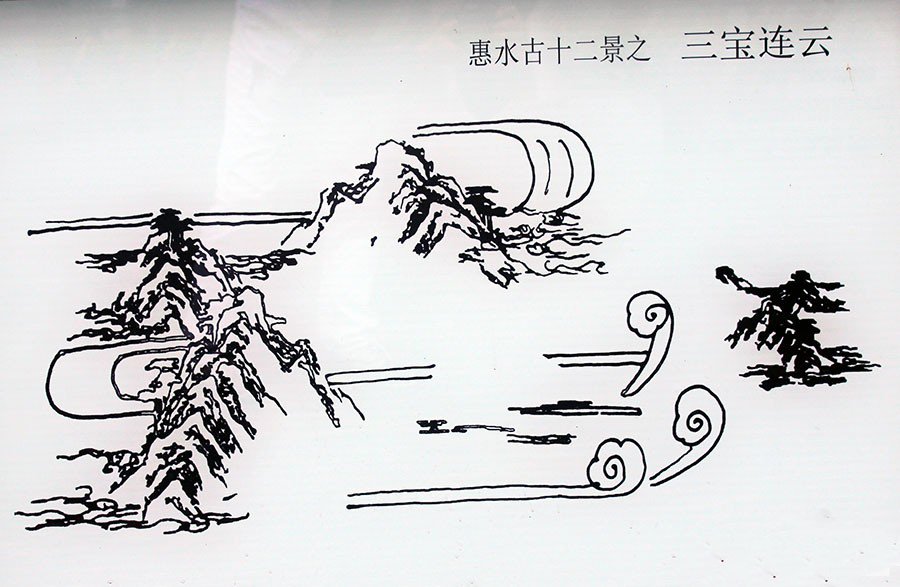 惠水古十二景之 三宝连云